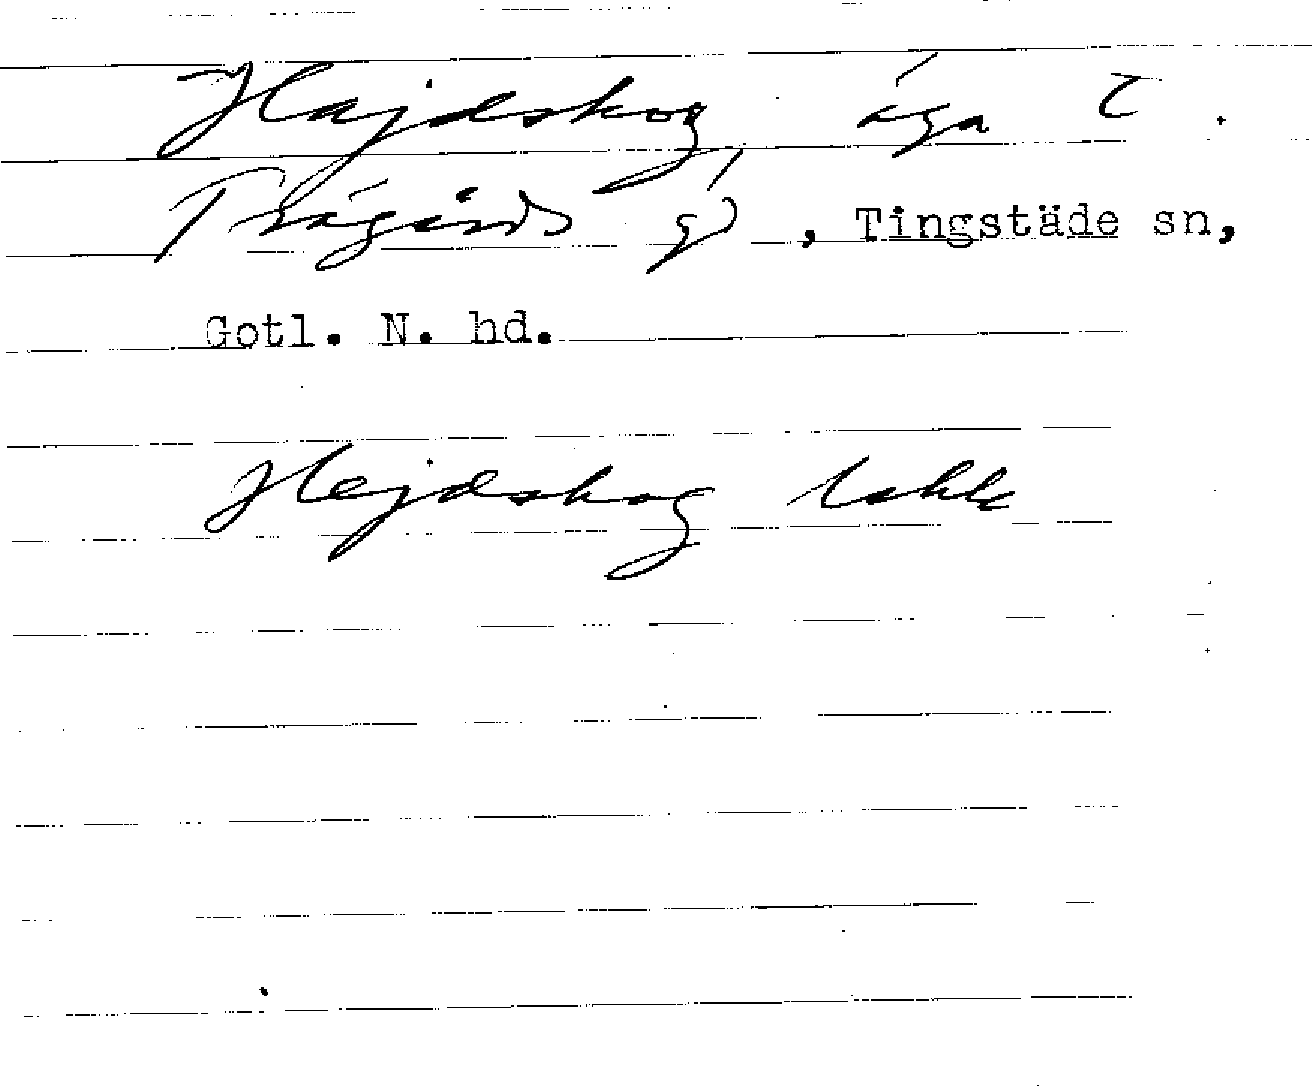 Hajdskog, äga t.
Trägårds gd, Tingstäde sn,
Gotl. N. hd.
Hejdskog